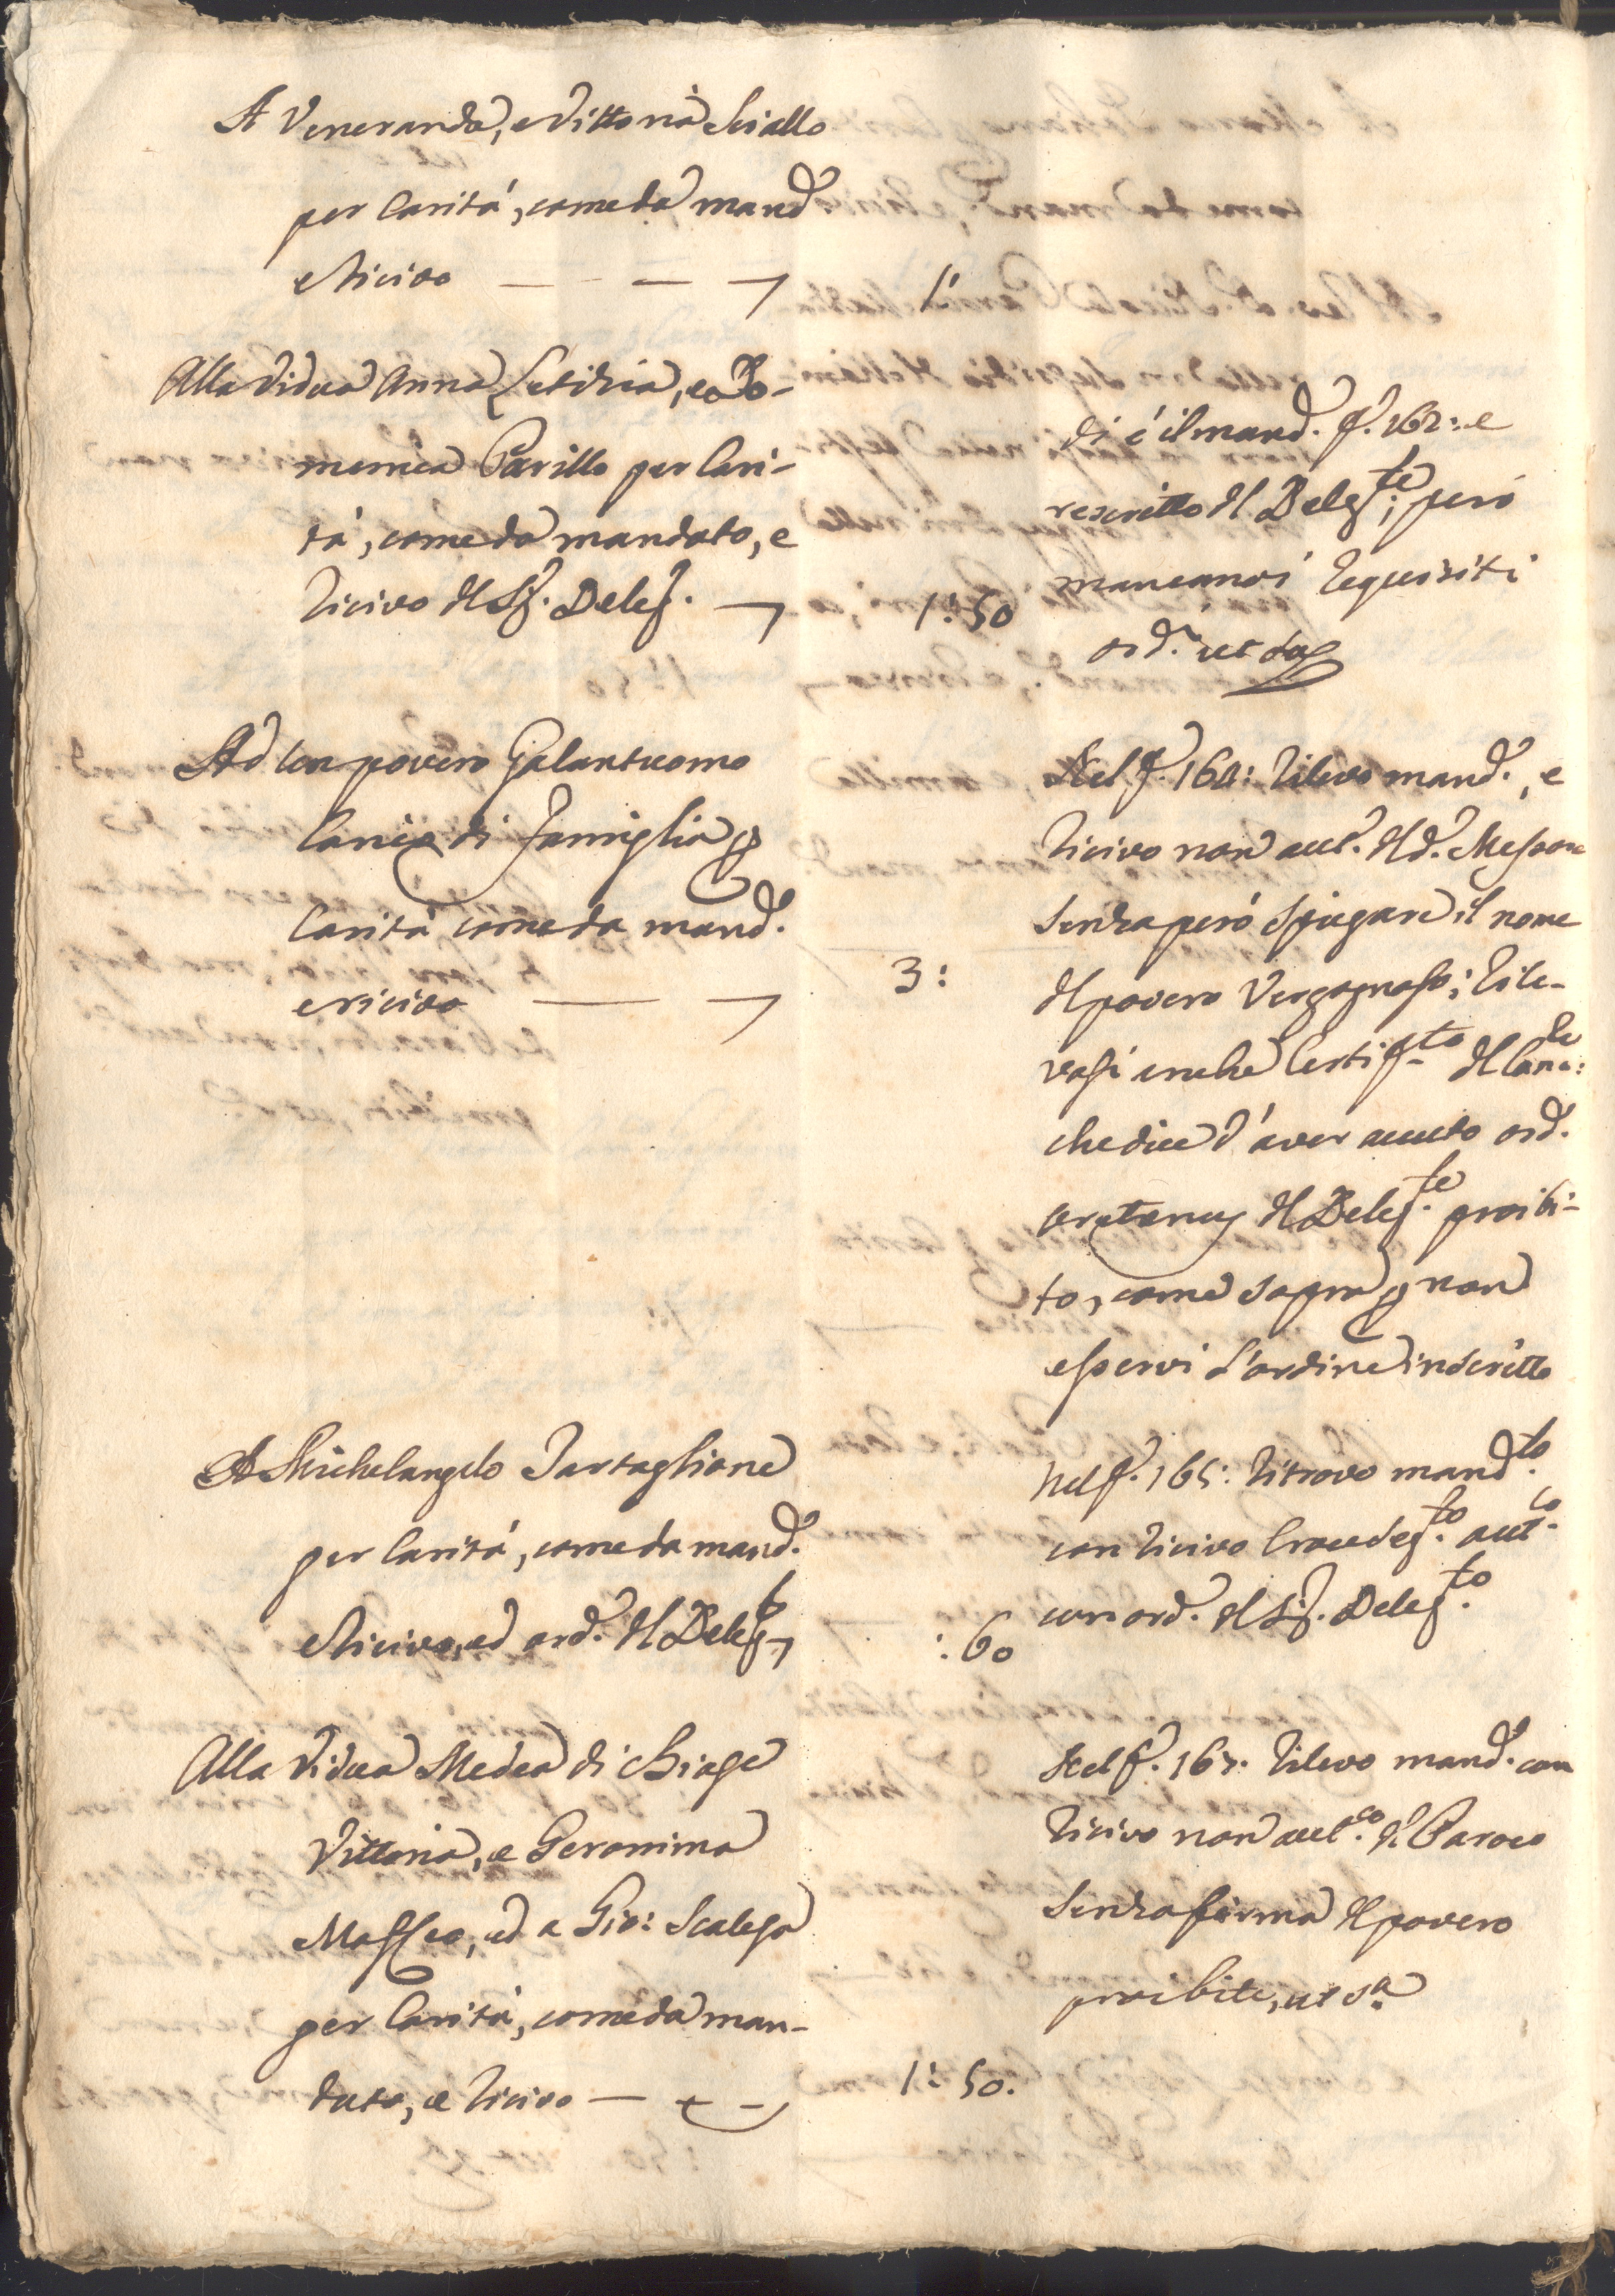 A Veneranda, e Vittoria Sciallo
per Carità, come da mand.
e Ricivo — — — 1:
Alla Vidua Anna Letizia, e a Do-
menica Parillo per Cari-
tà, come da mandato, e
Ricivo del Sig. Deleg. — 1: 50
Vi è il mand. f. 162: e
rescritto del Deleg.te; però
mancanvi requisiti
ord. ut sup.
Ad un povero Galantuomo
Carico di famiglia per
Carità come da mand.
e ricivo — — 3:
Nel f. 164: Rilevo mand., e
Ricivo non aut. del d. Messore
senza però spiegare il nome
del povero Vergognoso; Rile-
vasi anche Certif.to del Canc.:
che dice d'aver avuto ord.
oretenus del Deleg.te proibi-
to, come sopra per non
esservi l'ordine inscritto
A Michelangelo Tartaglione
per Carità, come da mand.
e Ricivo, ed ord. del Deleg.to : 60
Nel f. 165: Ritrovo mand.to
con Ricivo Croceseg.to aut.co
con ord. del Sig. Deleg.to
Alla Vidua Medea di Biage
Vittoria, e Geronima
Maffeo, ed a Gio: Scalesa
per Carità, come da man-
dato, e Ricivo — — 1: 50.
Nel f. 167. Rilevo mand. con
Ricivo non aut.co d. Paroco
senza firma del povero
proibite, ut s.a